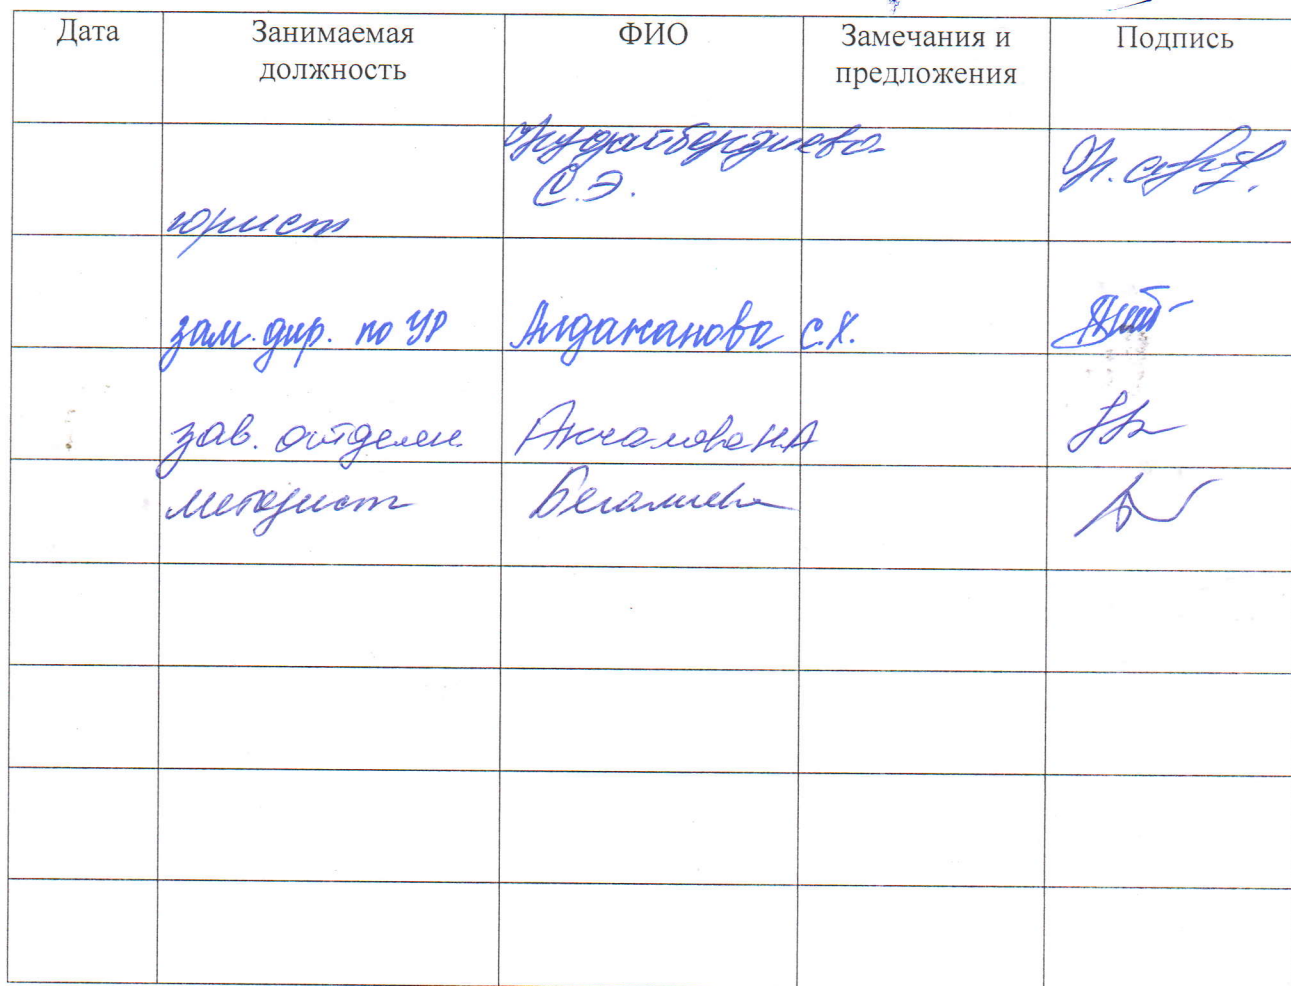 Дата Занимаемая должность ФИО Замечания и предложения Подпись
юрист Кудайбердиева С.Э.
зам. дир. по УР Алдажанова С.К.
зав. отделен. Акчалова Н.А
методист Бегалиева